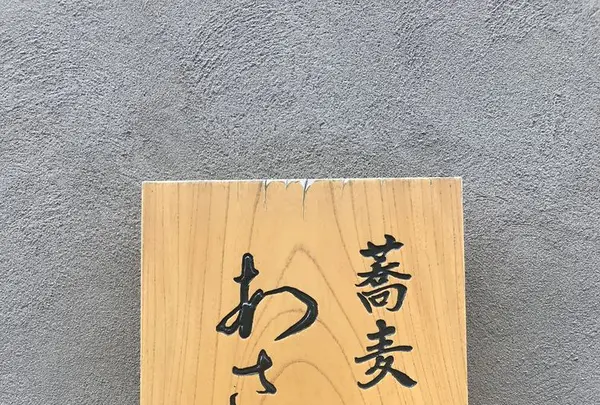 蕎麦
わさ